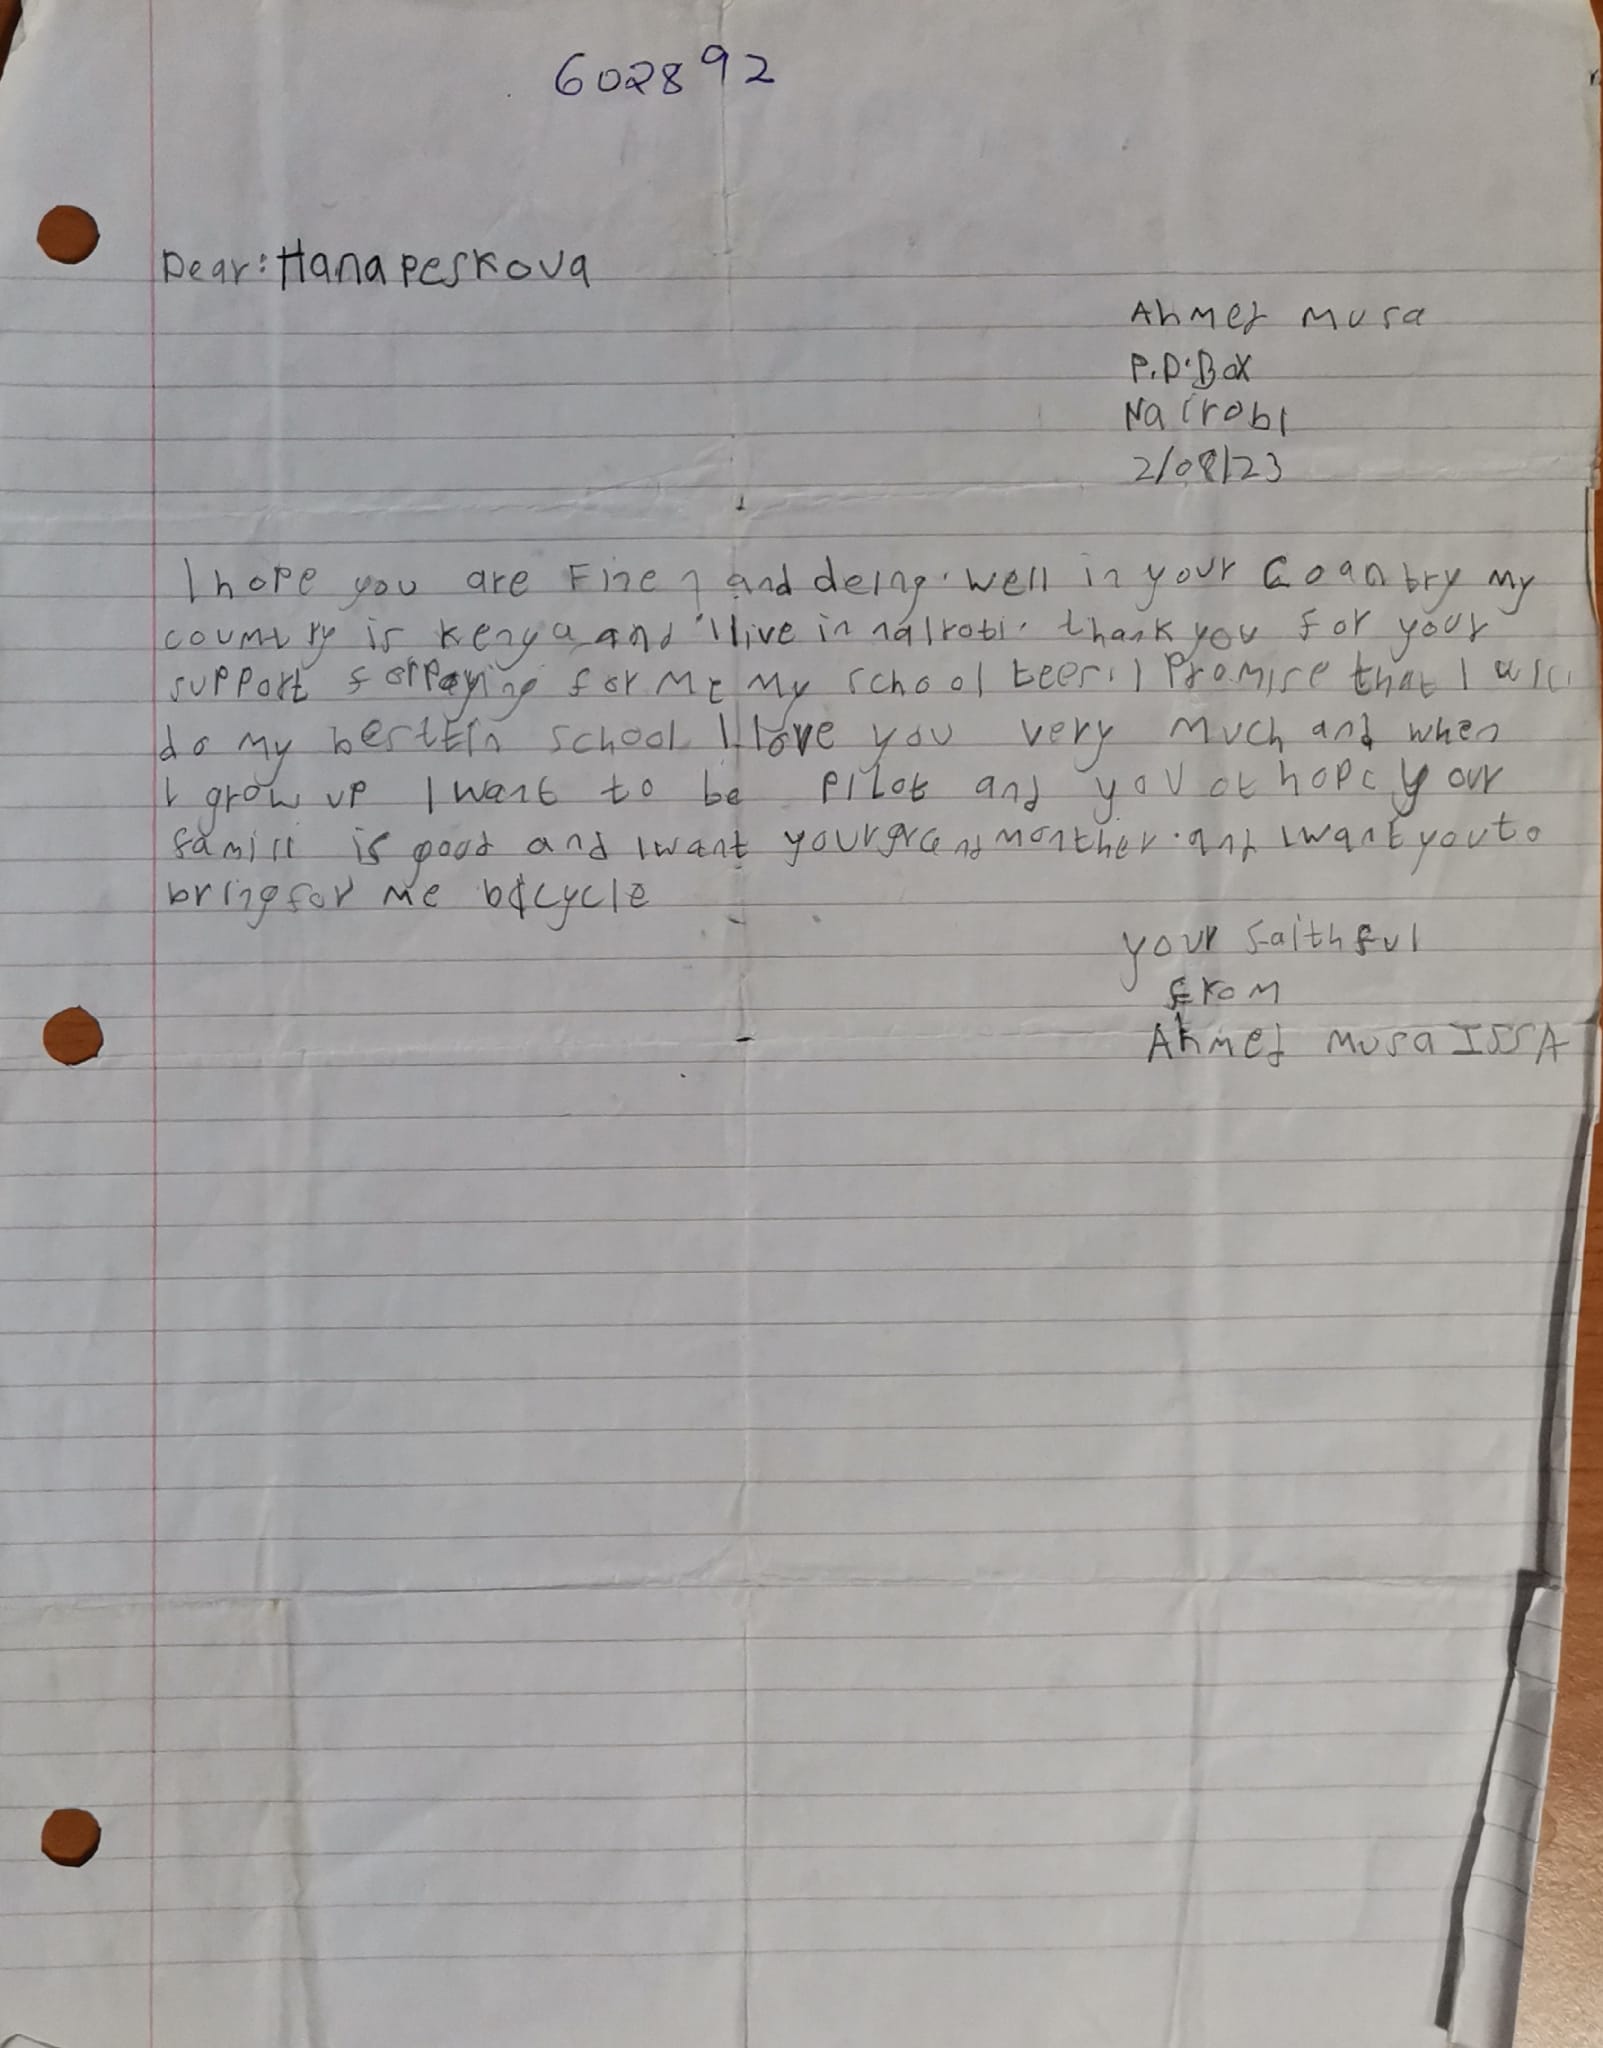 602892
Dear: Hana peskova
Ahmed Musa
P.O. Box
Nairobi
2/08/23
I hope you are Fine and deing. well in your Coantry my
country is kenya and I live in nairobi. thank you for your
support for paying for me my school fees. I promise that I will
do my bestEin school I love you very much and when
I grow up I want to be pilot and you hope your
famill is good and I want your grand monther. and I want you to
bring for me bicycle
your faithful
from
Ahmed Musa ISSA